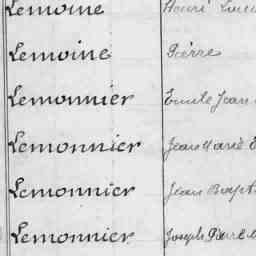 Lemoine Henri Louis
Lemoine Pierre
Lemonnier Emile Jean
Lemonnier Jean Marie
Lemonnier Jean Bapt
Lemonnier Joseph Pierre